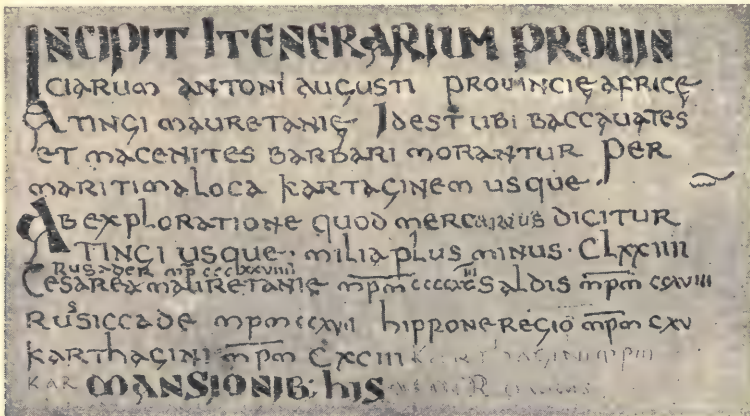 INCIPIT ITENERARIUM PROUIN
CIARUM ANTONI AUGUSTI PROUINCIĘ AFRICĘ
A TINGI MAURETANIĘ IDEST UBI BACCAUATES
ET MACENITES BARBARI MORANTUR PER
MARITIMA LOCA KARTAGINEM USQUE.
AB EXPLORATIONE QUOD MERCURIUS DICITUR
TINGI USQUE · MILIA PLUS MINUS · CLXXIIII
RUSADER MP CCCLXXVIIII
CESAREA MAURETANIĘ MPM SALDIS MPM CCXVIII
RUSICCADE MPM CCXVII HIPPONE REGIO MPM CXV
KARTHAGINI MPM CXCIII
KAR MANSIONIB; HIS